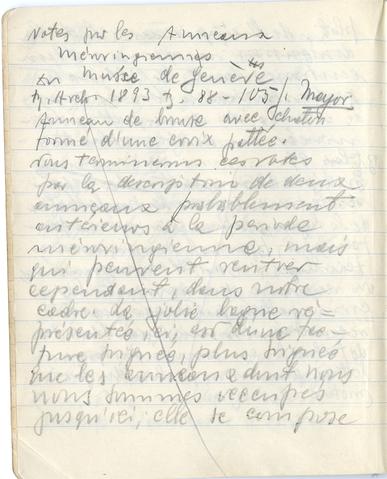 Notes sur les Anneaux
Mérovingiennes
du Musée de Genève
R. Arch. 1893 p. 88-105/. Mayor
Anneau de bronze avec chaton
formé d'une croix pattée.
Nous terminerons ces notes
par la description de deux
anneaux probablement
antérieurs à la periode
mérovingienne, mais
qui peuvent rentrer
cependant, dans notre
cadre. La jolie bague re-
présentée ici, est d'une fac-
ture soignée, plus soignée
que les anneaux dont nous
nous sommes occupés
jusqu'ici; elle se compose